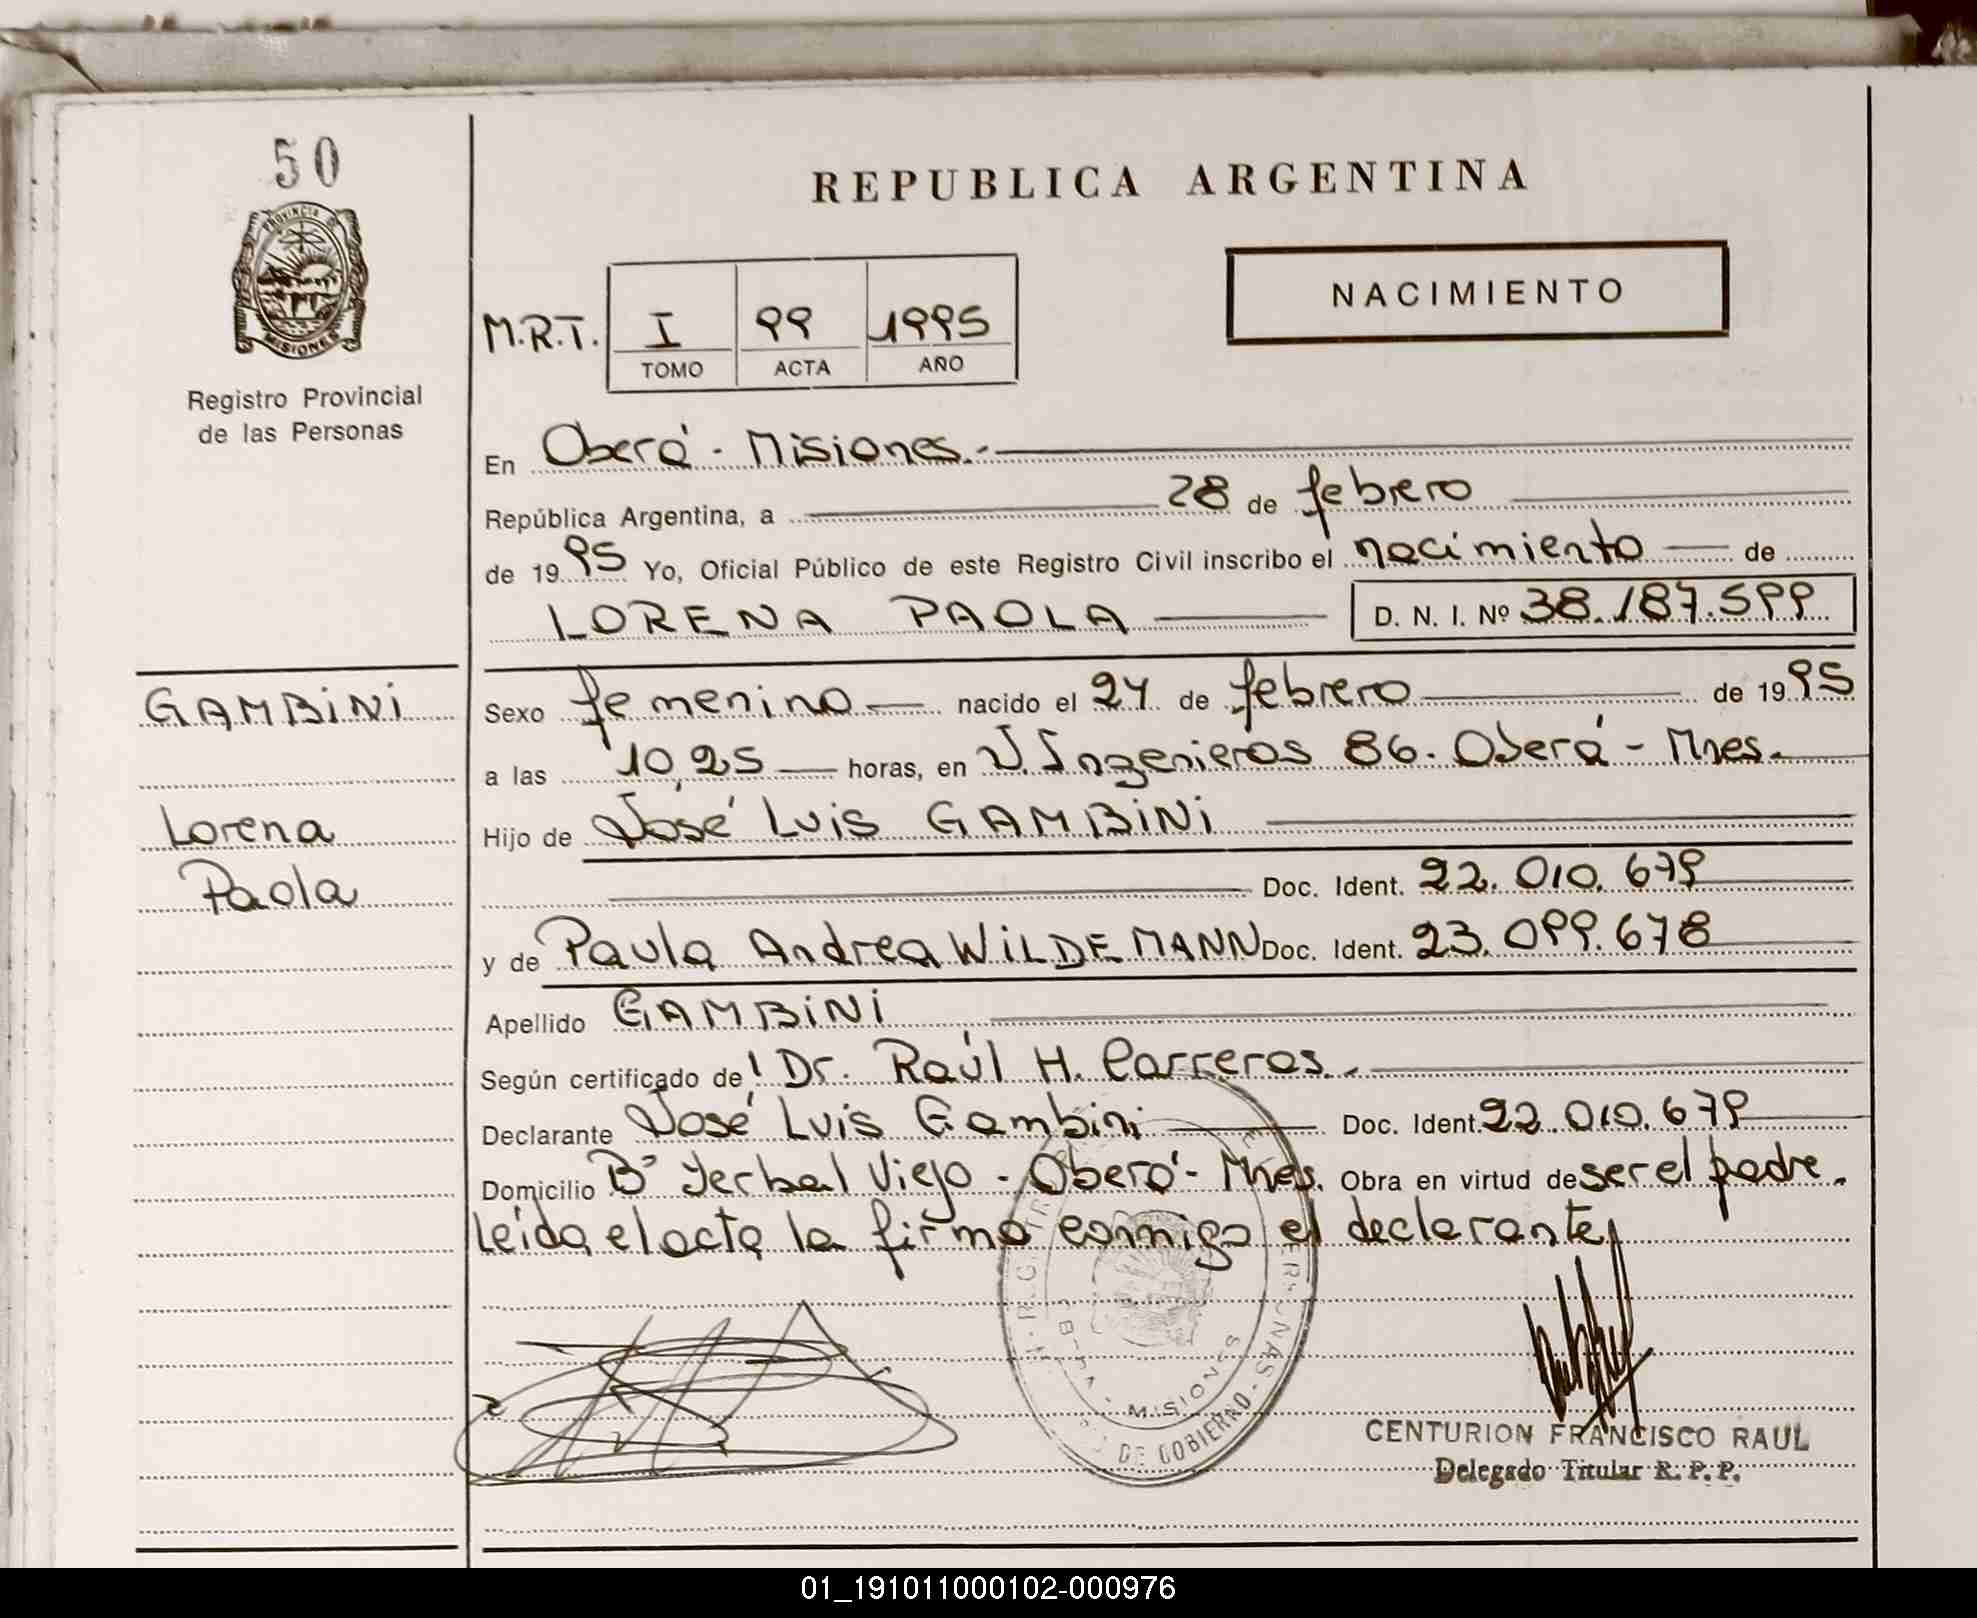 50
PROVINCIA D
MISIONES
Registro Provincial
de las Personas
REPUBLICA ARGENTINA
NACIMIENTO
M.R.T. I 99 1995
TOMO ACTA AÑO
En Oberá - Misiones.-
República Argentina, a 28 de febrero
de 1995 Yo, Oficial Público de este Registro Civil inscribo el nacimiento de
LORENA PAOLA D. N. I. Nº 38.187.599
GAMBiNi
Lorena
Paola
Sexo femenino nacido el 24 de febrero de 1995
a las 10,25 horas, en J. Ingenieros 86. Oberá - Mnes.
Hijo de José Luis GAMBiNi
Doc. Ident. 22.010.679
y de Paula Andrea WiLDEMANN Doc. Ident. 23.099.678
Apellido GAMBiNi
Según certificado de Dr. Raúl H. Carreras.-
Declarante José Luis Gambini Doc. Ident. 22.010.679
Domicilio Bº Yerbal Viejo - Oberá - Mnes. Obra en virtud de ser el padre.
Leída el acta la firma conmigo el declarante
MISIONES
DE GOBIERNO
CENTURION FRANCISCO RAUL
Delegado Titular R. P. P.
01_191011000102-000976